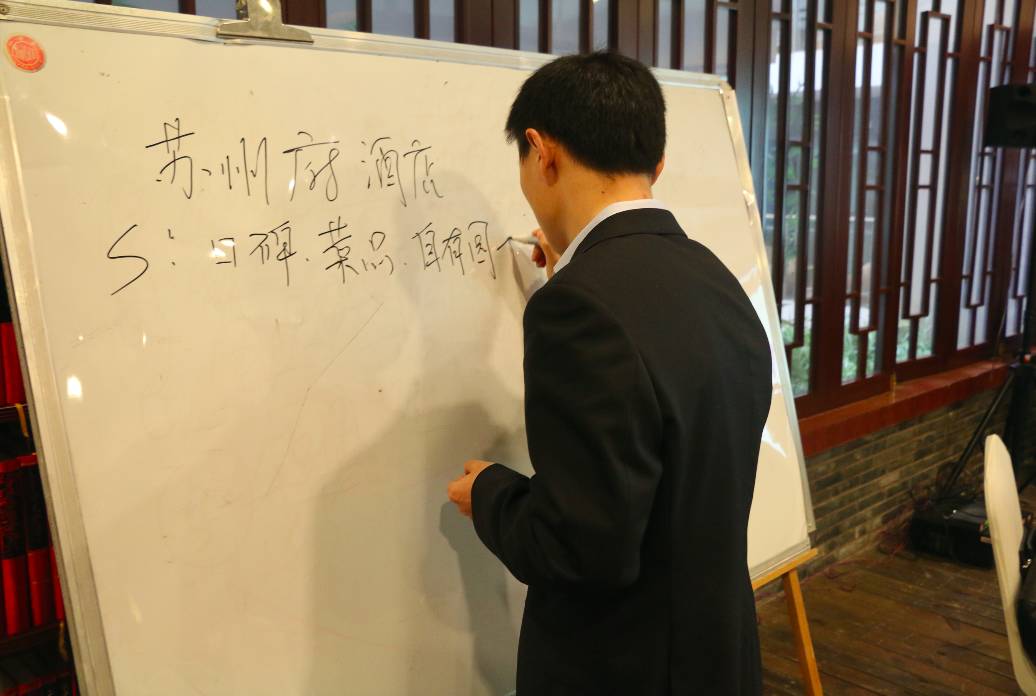 苏州府酒店
S：口碑．菜品．自有园